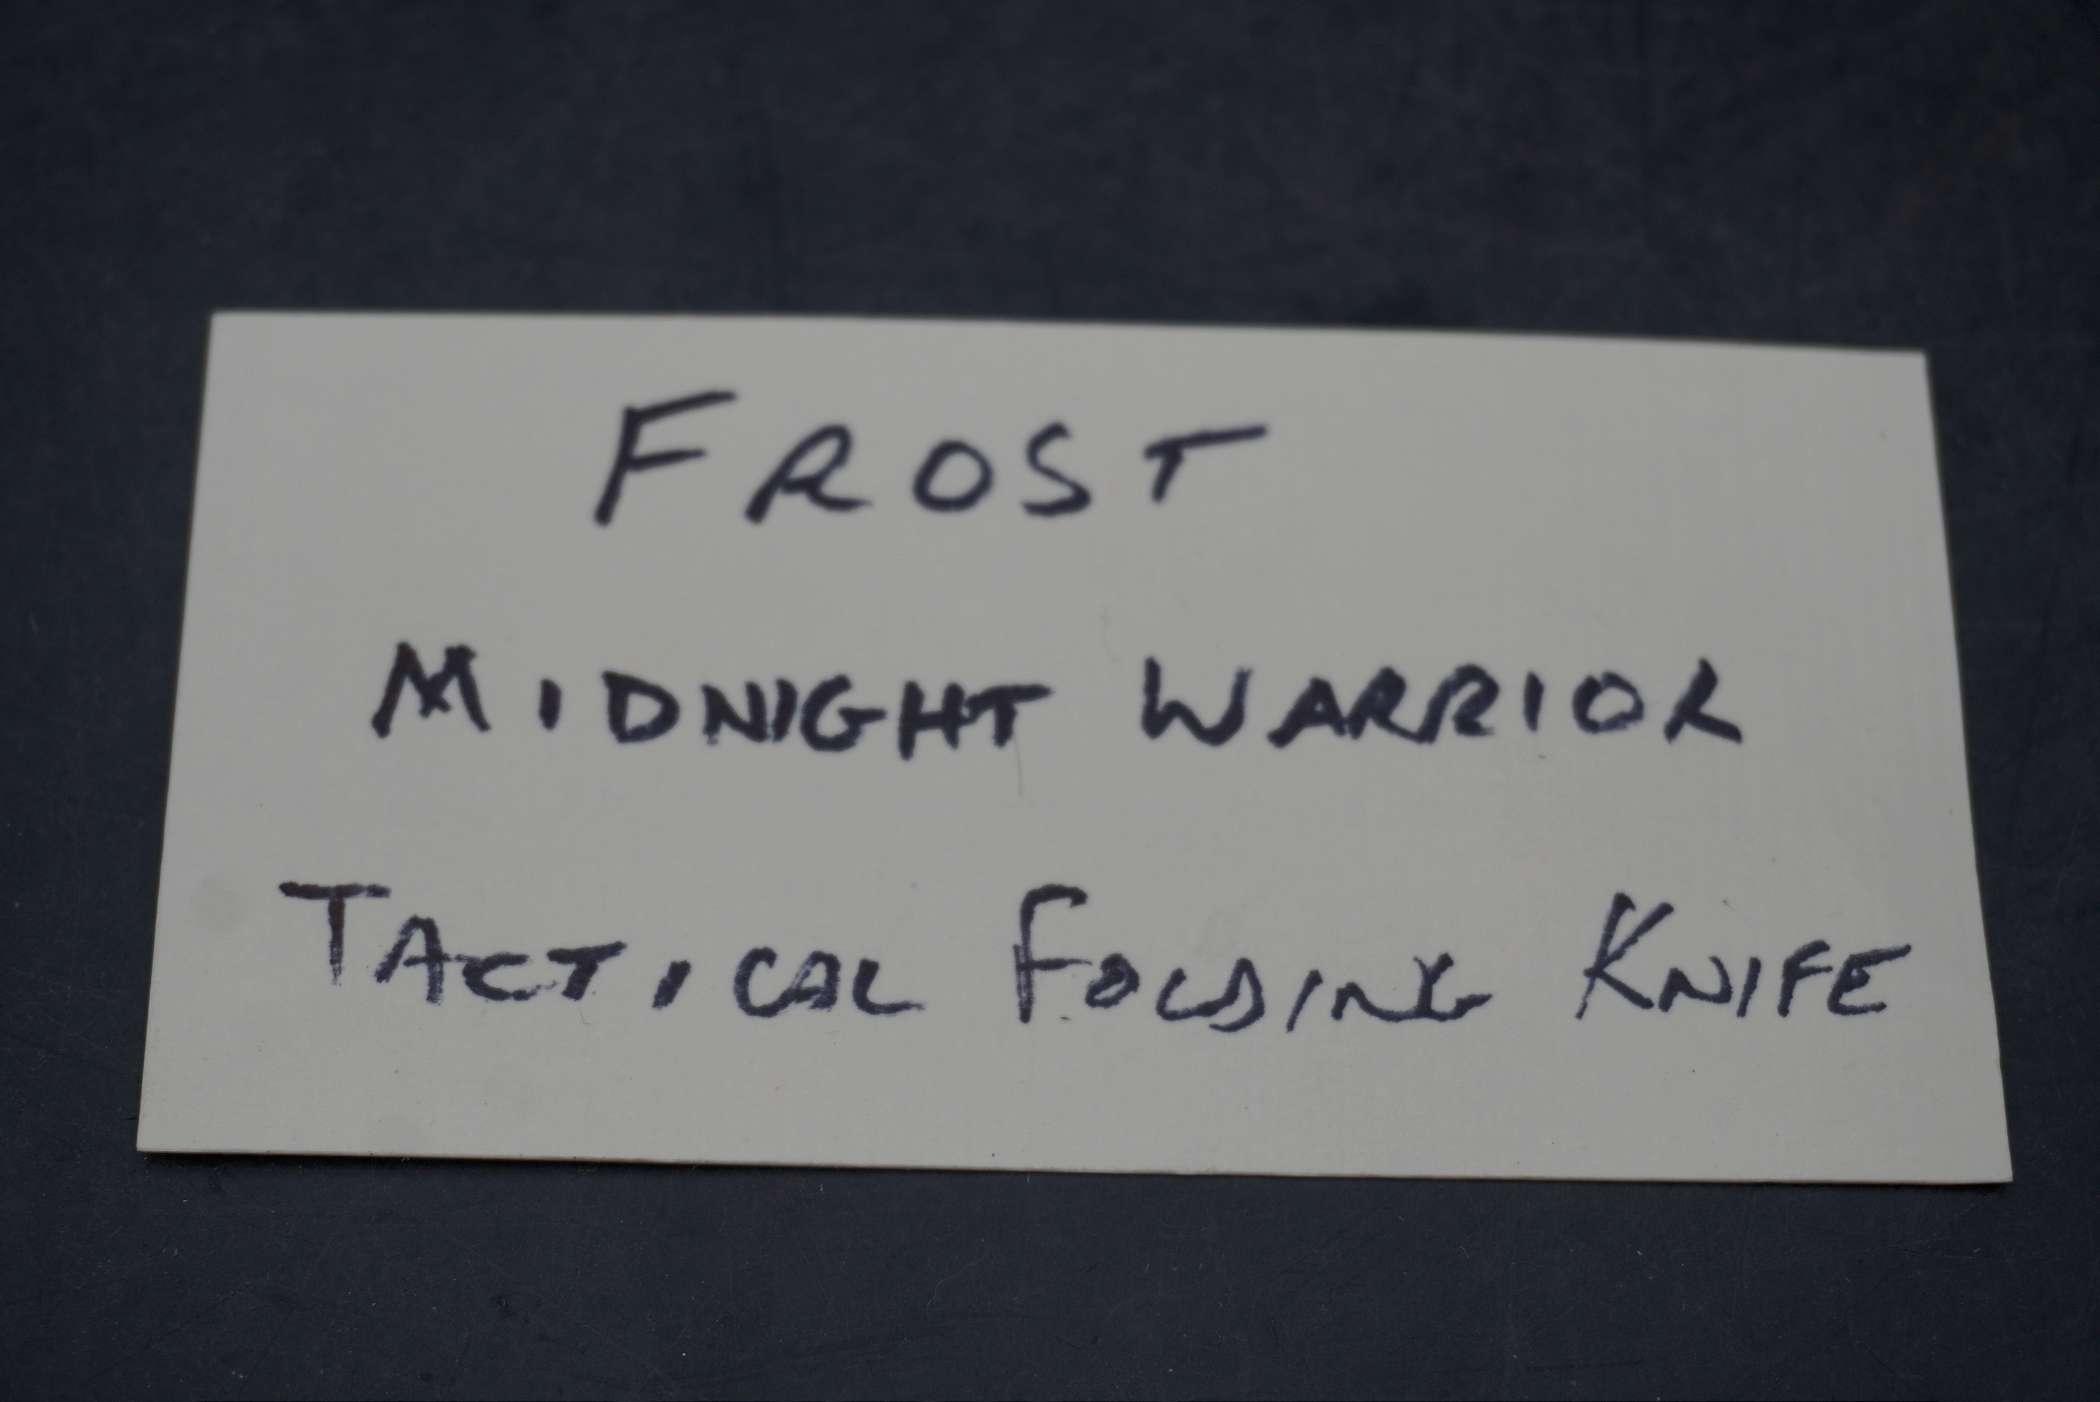 FROST
MIDNIGHT WARRIOR
TACTICAL FOLDING KNIFE